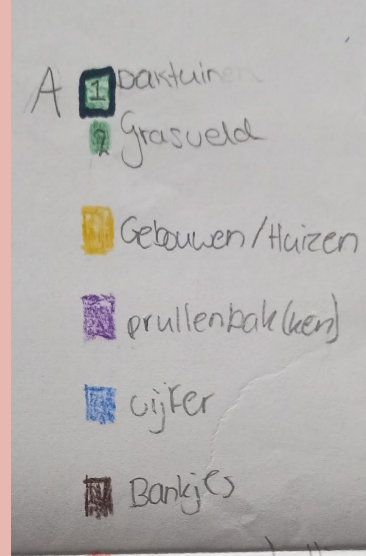 A 1 Daktuinen
2 Grasveld
Gebouwen/Huizen
prullenbak(ken)
vijver
Bankjes